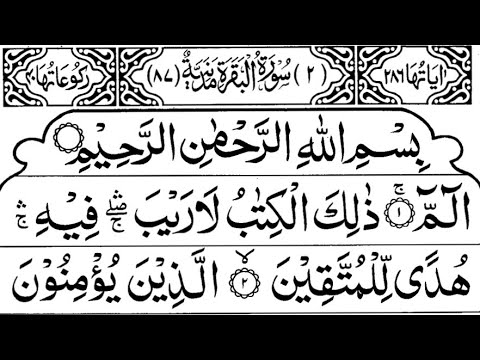 اٰيَاتُهَا ٢٨٦ (٢) سُوْرَةُ الْبَقَرَةِ مَدَنِيَّةٌ (٨٧) رُكُوْعَاتُهَا ٤٠
بِسْمِ اللّٰهِ الرَّحْمٰنِ الرَّحِيْمِ
الٓمّٓ ۚ ﴿١﴾ ذٰلِكَ الْكِتٰبُ لَا رَيْبَ ۛۖۚ فِيْهِ ۛۚ
هُدًى لِّلْمُتَّقِيْنَ ۙ ﴿٢﴾ الَّذِيْنَ يُؤْمِنُوْنَ